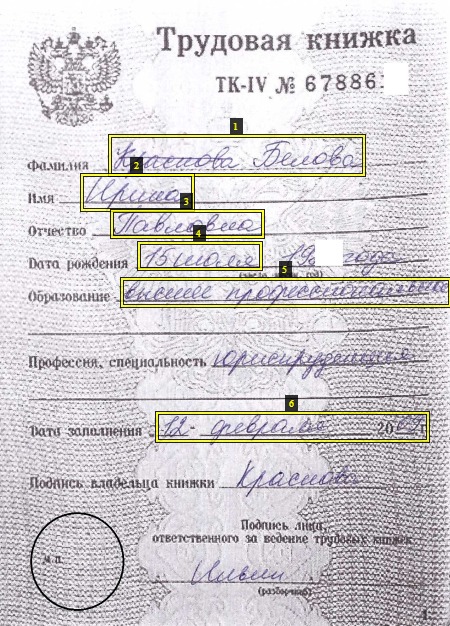 Трудовая книжка
ТК-IV № 67886
1
Фамилия Краснова Белова
2
Имя Ирина
3
Отчество Павловна
4
Дата рождения 15 июля 19 года
(число, месяц, год)
5
Образование высшее профессиональное
Профессия, специальность юриспруденция
6
Дата заполнения 12 февраля 20 г.
Подпись владельца книжки Краснова
Подпись лица,
ответственного за ведение трудовых книжек
М.П.
(разборчиво)
1